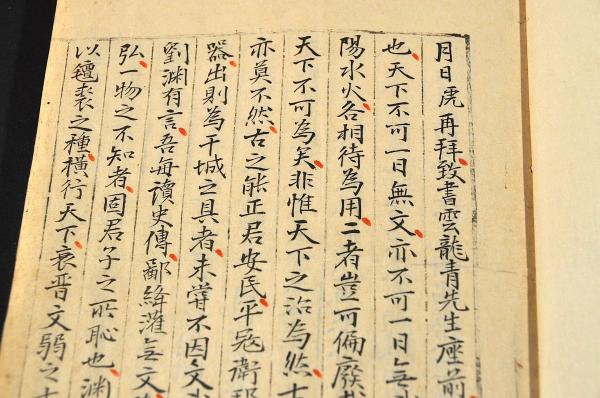 月日虎再拜致書雲龍青先生座前
也天下不可一日無文亦不可一日無
陽水火各相待為用二者豈可偏廢
天下不可為矣非惟天下之治為然古
亦莫不然古之能正君安民平寇衛
器出則為干城之具者未嘗不因文
劉淵有言吾每讀史傳鄙絳灌無文
弘一物之不知者固君子之所恥也淵
以氊裘之種橫行天下衰晋文弱之